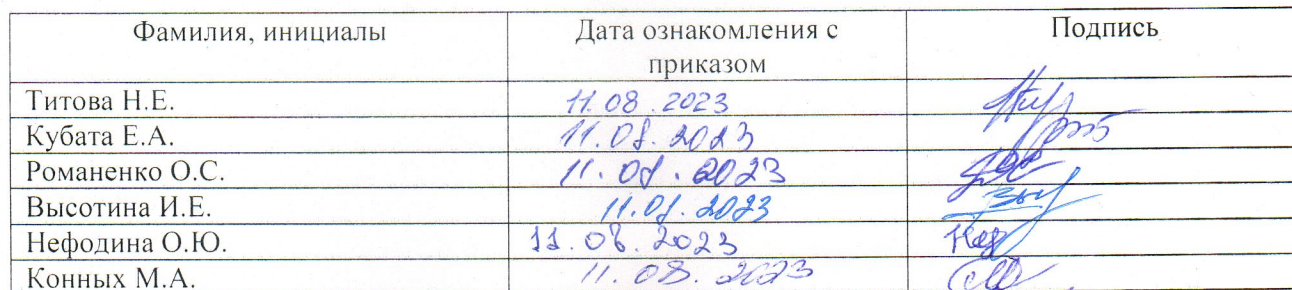 Фамилия, инициалы Дата ознакомления с приказом Подпись
Титова Н.Е. 11.08.2023
Кубата Е.А. 11.08.2023
Романенко О.С. 11.08.2023
Высотина И.Е. 11.08.2023
Нефодина О.Ю. 11.08.2023
Конных М.А. 11.08.2023